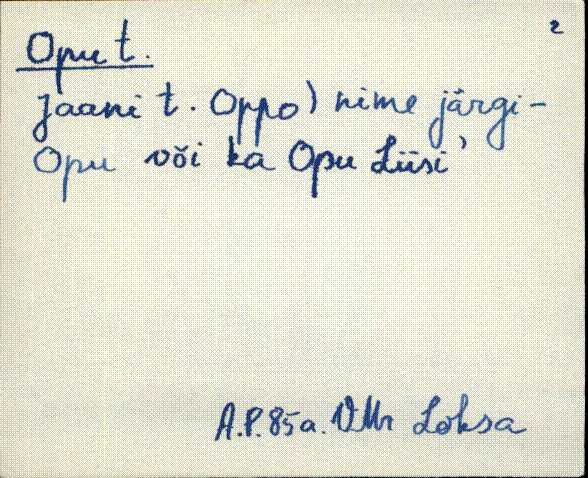 2
Opu t.
Jaani t. Oppo) nime järgi -
Opu või ka Opu Liisi’
A.P. 85a. VMr Loksa